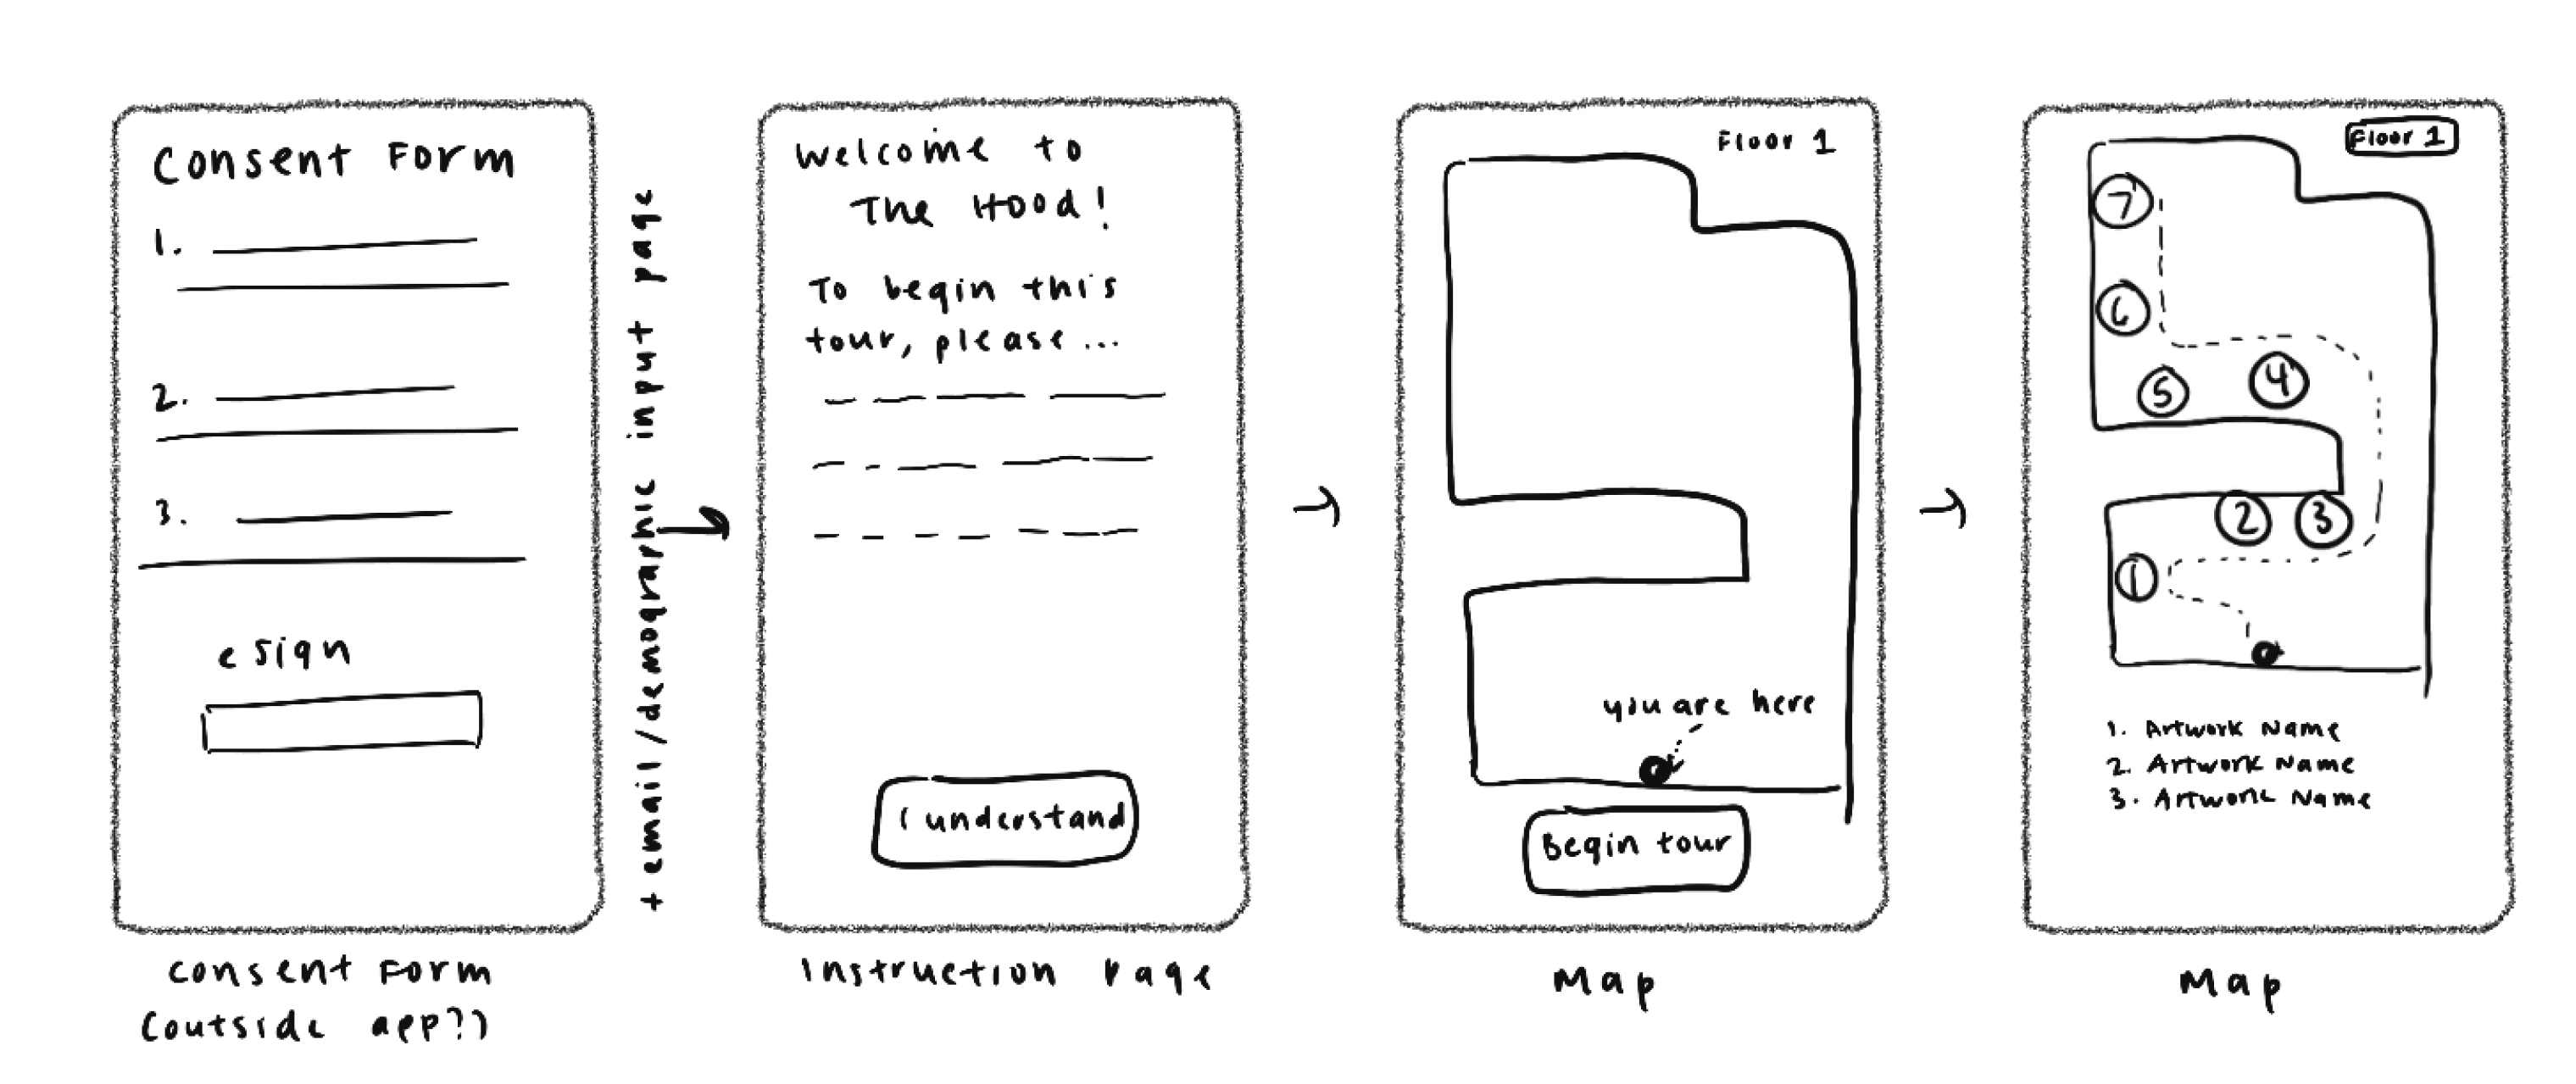 Consent Form
1.
2.
3.
e sign
consent form
(outside app?)
+ email/demographic input page
Welcome to
The Hood!
To begin this
tour, please...
I understand
Instruction Page
Floor 1
you are here
Begin tour
Map
Floor 1
7
6
5
4
2
3
1
1. Artwork Name
2. Artwork Name
3. Artwork Name
Map